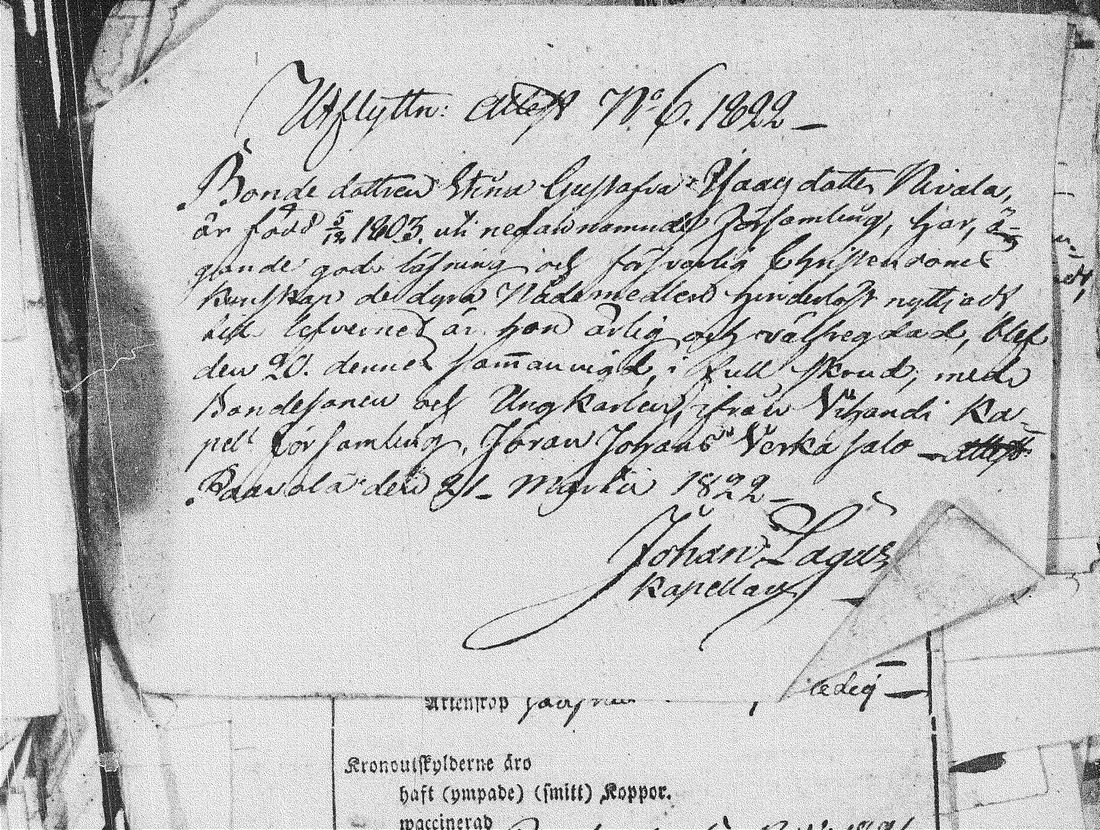 Utflyttn: Attest No 6. 1822 —
Bonde dottren Stina Gustafva Isaacs dotter Nivala,
är född 5/12 1803. uti nedannamnde Församling, har, ä-
gande god läsning och försvarlig Christendoms
kunskap de dyra Nådemedlen hinderlöst nyttjadt
till lefvernet är hon ärlig och välfregdad, blef
den 20. dennes samanvigd, i full skrud, med
Bondesonen och Ungkarlen, ifrån Vihandi Ka-
pell församling, Jöran Johans Verkasalo —
Paavola den 21 Martii 1822 —
Johan Lagus
Kapellan
ledig —
Artenskop
Kronoutskylderne äro
haft (ympade) (smitt) Koppor.
waccinerad